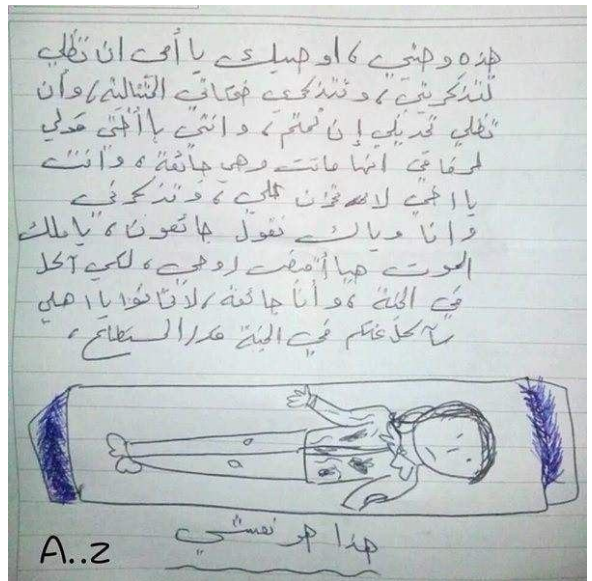 هذه وصيتي ، اوصيك يا أمي ان تظلي
وتتذكري ضحكاتي ، وأن
تظلي ، وانتي يا أختي قولي
لرفاقي انها ماتت وهي جائعة ، وانت
يا اخي لا تحزن علي ، وتذكرني
وانا وياك نقول جائعون ، يا ملك
الموت هيا أقبض روحي ، لكي آكل
في الجنة ، وأنا جائعة ، يا اهلي
سآكل عنكم في الجنة قدر المستطاع ،
هذا هو نعشي
A..z